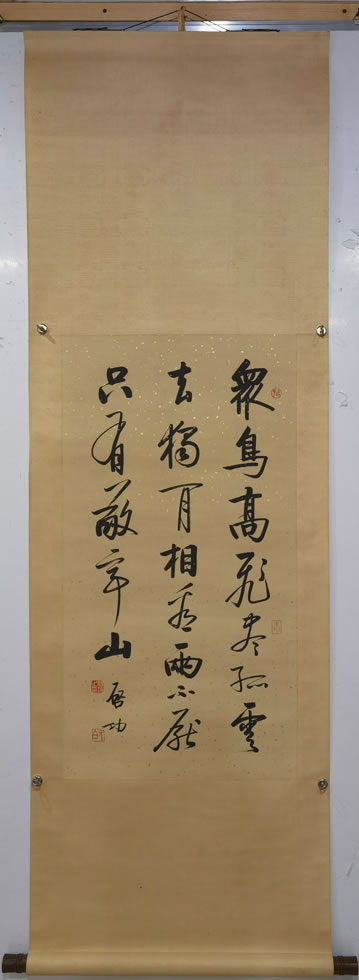 衆鳥高飛盡孤雲
去獨閒相看兩不厭
只有敬亭山
啓功